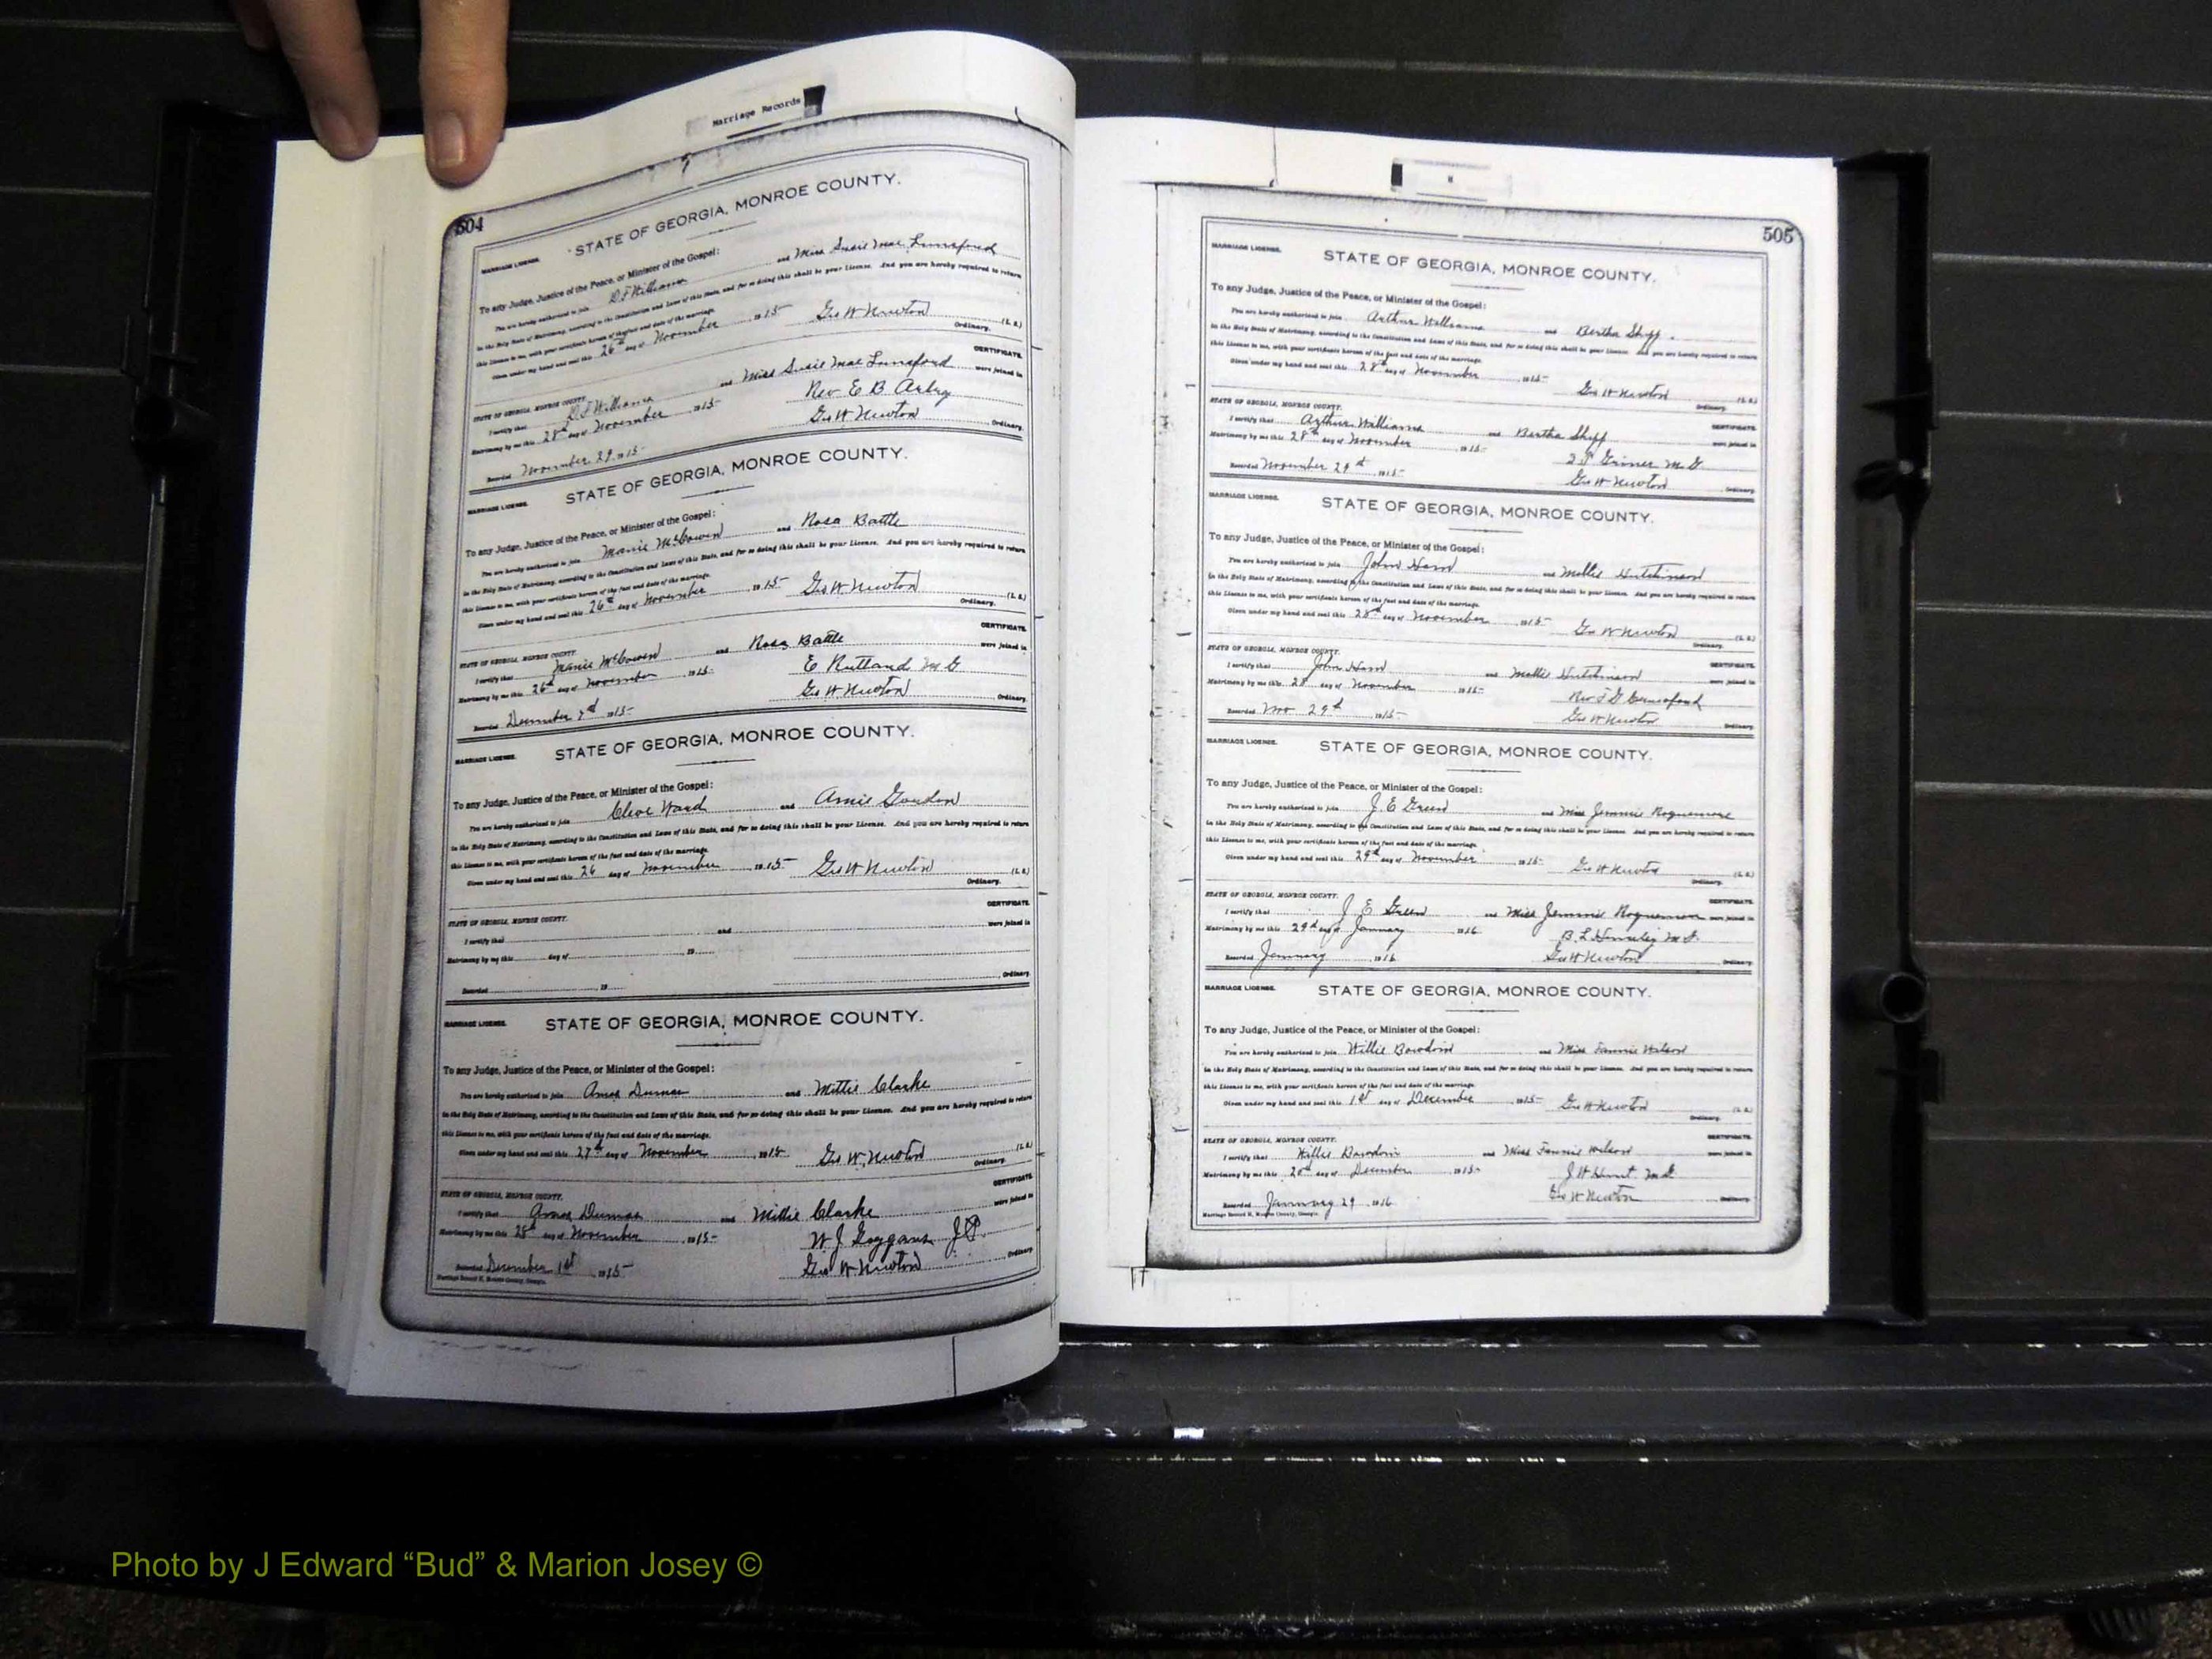 Marriage Records
504
MARRIAGE LICENSE.
STATE OF GEORGIA, MONROE COUNTY.
To any Judge, Justice of the Peace, or Minister of the Gospel:
You are hereby authorized to join D F Williams and Miss Susie Mae Lunsford
in the Holy State of Matrimony, according to the Constitution and Laws of this State, and for so doing this shall be your License. And you are hereby required to return
this License to me, with your certificate hereon of the fact and date of the marriage.
Given under my hand and seal this 26th day of November 1915 Geo W Newton (L. S.)
Ordinary.
CERTIFICATE.
STATE OF GEORGIA, MONROE COUNTY.
I certify that D F Williams and Miss Susie Mae Lunsford were joined in
Matrimony by me this 28th day of November 1915 Rev E B
Recorded November 29 1915 Geo W Newton Ordinary.
MARRIAGE LICENSE.
STATE OF GEORGIA, MONROE COUNTY.
To any Judge, Justice of the Peace, or Minister of the Gospel:
You are hereby authorized to join Manie McCowen and Rosa Battle
in the Holy State of Matrimony, according to the Constitution and Laws of this State, and for so doing this shall be your License. And you are hereby required to return
this License to me, with your certificate hereon of the fact and date of the marriage.
Given under my hand and seal this 26th day of November 1915 Geo W Newton (L. S.)
Ordinary.
CERTIFICATE.
STATE OF GEORGIA, MONROE COUNTY.
I certify that Manie McCowen and Rosa Battle were joined in
Matrimony by me this 26th day of November 1915 E Rutland M G
Recorded December 1915 Geo W Newton Ordinary.
MARRIAGE LICENSE.
STATE OF GEORGIA, MONROE COUNTY.
To any Judge, Justice of the Peace, or Minister of the Gospel:
You are hereby authorized to join Cleve Ward and Amie Goudon
in the Holy State of Matrimony, according to the Constitution and Laws of this State, and for so doing this shall be your License. And you are hereby required to return
this License to me, with your certificate hereon of the fact and date of the marriage.
Given under my hand and seal this 26 day of November 1915 Geo W Newton (L. S.)
Ordinary.
CERTIFICATE.
STATE OF GEORGIA, MONROE COUNTY.
I certify that and were joined in
Matrimony by me this day of 19
Recorded 19 Ordinary.
MARRIAGE LICENSE.
STATE OF GEORGIA, MONROE COUNTY.
To any Judge, Justice of the Peace, or Minister of the Gospel:
You are hereby authorized to join Amos Dumas and Mittie Clarke
in the Holy State of Matrimony, according to the Constitution and Laws of this State, and for so doing this shall be your License. And you are hereby required to return
this License to me, with your certificate hereon of the fact and date of the marriage.
Given under my hand and seal this 27th day of November 1915 Geo W. Newton (L. S.)
Ordinary.
CERTIFICATE.
STATE OF GEORGIA, MONROE COUNTY.
I certify that Amos Dumas and Mittie Clarke were joined in
Matrimony by me this 28th day of November 1915 W J Goggans J.P.
Recorded December 1st 1915 Geo W Newton Ordinary.
Marriage Record H, Monroe County, Georgia.
505
MARRIAGE LICENSE.
STATE OF GEORGIA, MONROE COUNTY.
To any Judge, Justice of the Peace, or Minister of the Gospel:
You are hereby authorized to join Arthur Williams and Bertha Shipp.
in the Holy State of Matrimony, according to the Constitution and Laws of this State, and for so doing this shall be your License. And you are hereby required to return
this License to me, with your certificate hereon of the fact and date of the marriage.
Given under my hand and seal this 28th day of November 1915
Geo W Newton (L. S.)
Ordinary.
STATE OF GEORGIA, MONROE COUNTY.
CERTIFICATE.
I certify that Arthur Williams and Bertha Shipp were joined in
Matrimony by me this 28th day of November 1915
Griner M. G.
Recorded November 29th 1915 Geo W Newton Ordinary.
MARRIAGE LICENSE.
STATE OF GEORGIA, MONROE COUNTY.
To any Judge, Justice of the Peace, or Minister of the Gospel:
You are hereby authorized to join John Ham and Mollie Hutchinson
in the Holy State of Matrimony, according to the Constitution and Laws of this State, and for so doing this shall be your License. And you are hereby required to return
this License to me, with your certificate hereon of the fact and date of the marriage.
Given under my hand and seal this 28th day of November 1915 Geo W Newton (L. S.)
Ordinary.
STATE OF GEORGIA, MONROE COUNTY.
CERTIFICATE.
I certify that John Ham and Mollie Hutchinson were joined in
Matrimony by me this 28 day of November 1915 Rev
Recorded Nov 29th 1915 Geo W Newton Ordinary.
MARRIAGE LICENSE.
STATE OF GEORGIA, MONROE COUNTY.
To any Judge, Justice of the Peace, or Minister of the Gospel:
You are hereby authorized to join J. E Green and Miss Jimmie Roquemore
in the Holy State of Matrimony, according to the Constitution and Laws of this State, and for so doing this shall be your License. And you are hereby required to return
this License to me, with your certificate hereon of the fact and date of the marriage.
Given under my hand and seal this 29th day of November 1915 Geo W Newton (L. S.)
Ordinary.
STATE OF GEORGIA, MONROE COUNTY.
CERTIFICATE.
I certify that J E Green and Miss Jimmie Roquemore were joined in
Matrimony by me this 29th day of January 1916 B. L. M. G.
Recorded January 1916 Geo W Newton Ordinary.
MARRIAGE LICENSE.
STATE OF GEORGIA, MONROE COUNTY.
To any Judge, Justice of the Peace, or Minister of the Gospel:
You are hereby authorized to join Willie Bowdoin and Miss Fannie Wilson
in the Holy State of Matrimony, according to the Constitution and Laws of this State, and for so doing this shall be your License. And you are hereby required to return
this License to me, with your certificate hereon of the fact and date of the marriage.
Given under my hand and seal this 1st day of December 1915 Geo W Newton (L. S.)
Ordinary.
STATE OF GEORGIA, MONROE COUNTY.
CERTIFICATE.
I certify that Willie Bowdoin and Miss Fannie Wilson were joined in
Matrimony by me this 20th day of December 1915 J W Hunt M. G.
Recorded January 29 1916 Geo W Newton Ordinary.
Marriage Record H, Monroe County, Georgia.
Photo by J Edward “Bud” & Marion Josey ©